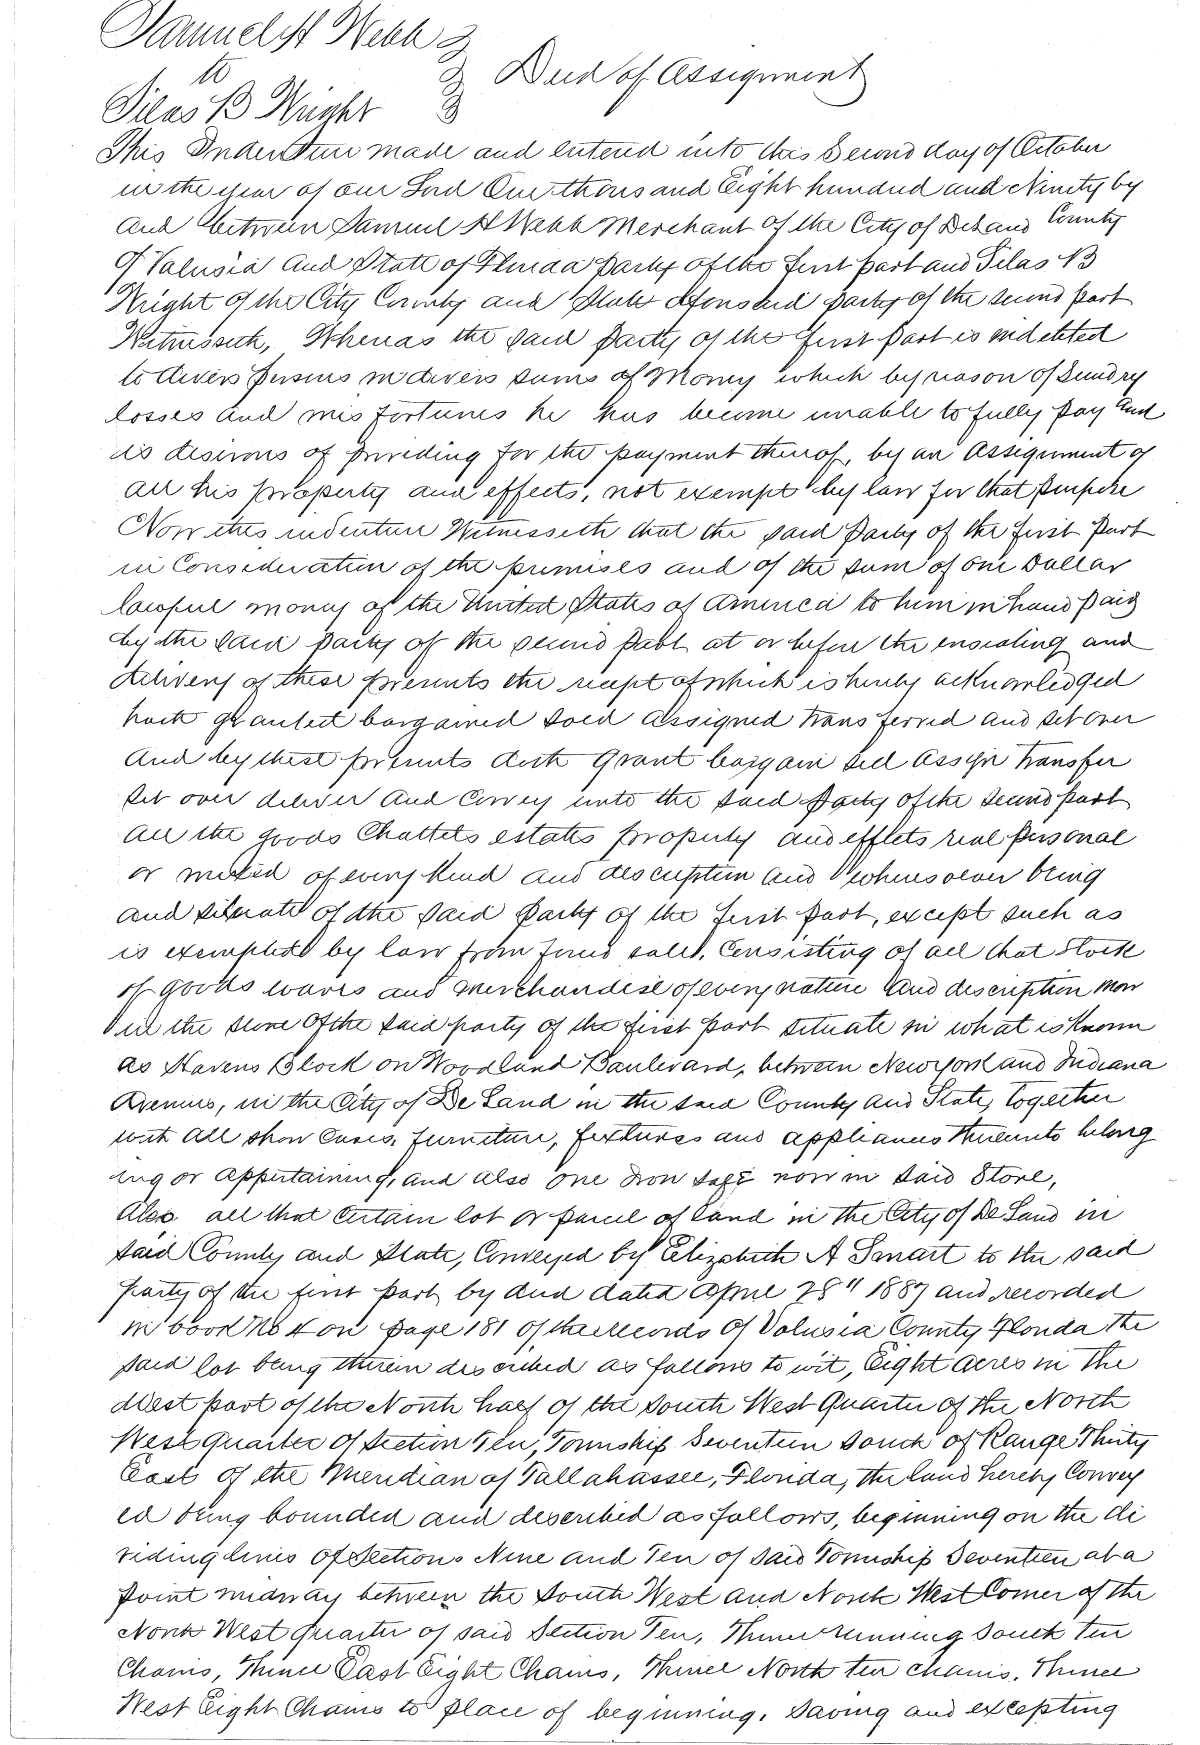 Samuel H Webb
to
Deed of Assignment
Silas B Wright
This Indenture made and entered into this Second day of October
in the year of our Lord One thousand Eight hundred and Ninety by
and between Samuel H Webb Merchant of the City of DeLand County
of Valusia and State of Florida party of the first part and Silas B
Wright of the City County and State aforesaid party of the second part
Witnesseth, Whereas the said party of the first part is indebted
to divers persons in divers sums of Money which by reason of Sundry
losses and misfortunes he has become unable to fully pay and
is desirous of providing for the payment thereof, by an Assignment of
all his property and effects, not exempt by law for that purpose
Now this indenture Witnesseth that the said Party of the first Part
in Consideration of the premises and of the sum of one Dollar
lawful money of the United States of America to him in hand paid
by the said party of the second part at or before the ensealing and
delivery of these presents the receipt of which is hereby acknowledged
hath granted bargained sold assigned transferred and set over
And by these presents doth grant bargain sell assign transfer
set over deliver and Convey unto the said Party of the second part
all the goods Chattels estates property and effects real personal
or mixed of every kind and description and wheresoever being
and situate of the said party of the first part, except such as
is exempted by law from forced sale, Consisting of all that stock
of goods wares and merchandise of every nature and description now
in the store of the said party of the first part situate in what is known
as Havens Block on Woodland Boulevard, between New York and Indiana
Avenues, in the City of De Land in the said County and State, together
with all show Cases, furniture, fixtures and appliances thereunto belong
ing or appertaining, and also one Iron safe now in said Store,
Also all that certain lot or parcel of land in the City of De Land in
said County and State, Conveyed by Elizabeth A Smart to the said
party of the first part by deed dated April 28" 1887 and recorded
in book No 4 on page 181 of the records of Volusia County Florida the
said lot being therein described as follows to wit, Eight acres in the
West part of the North half of the South West Quarter of the North
West quarter of Section Ten, Township Seventeen South of Range Thirty
East of the Meridian of Tallahassee, Florida, the land hereby Convey
ed being bounded and described as follows, beginning on the di
viding lines of Sections Nine and Ten of said Township Seventeen at a
point midway between the South West and North West Corner of the
North West quarter of said Section Ten, Thence running South ten
Chains, Thence East Eight Chains, Thence North ten chains, Thence
West Eight Chains to place of beginning, saving and excepting